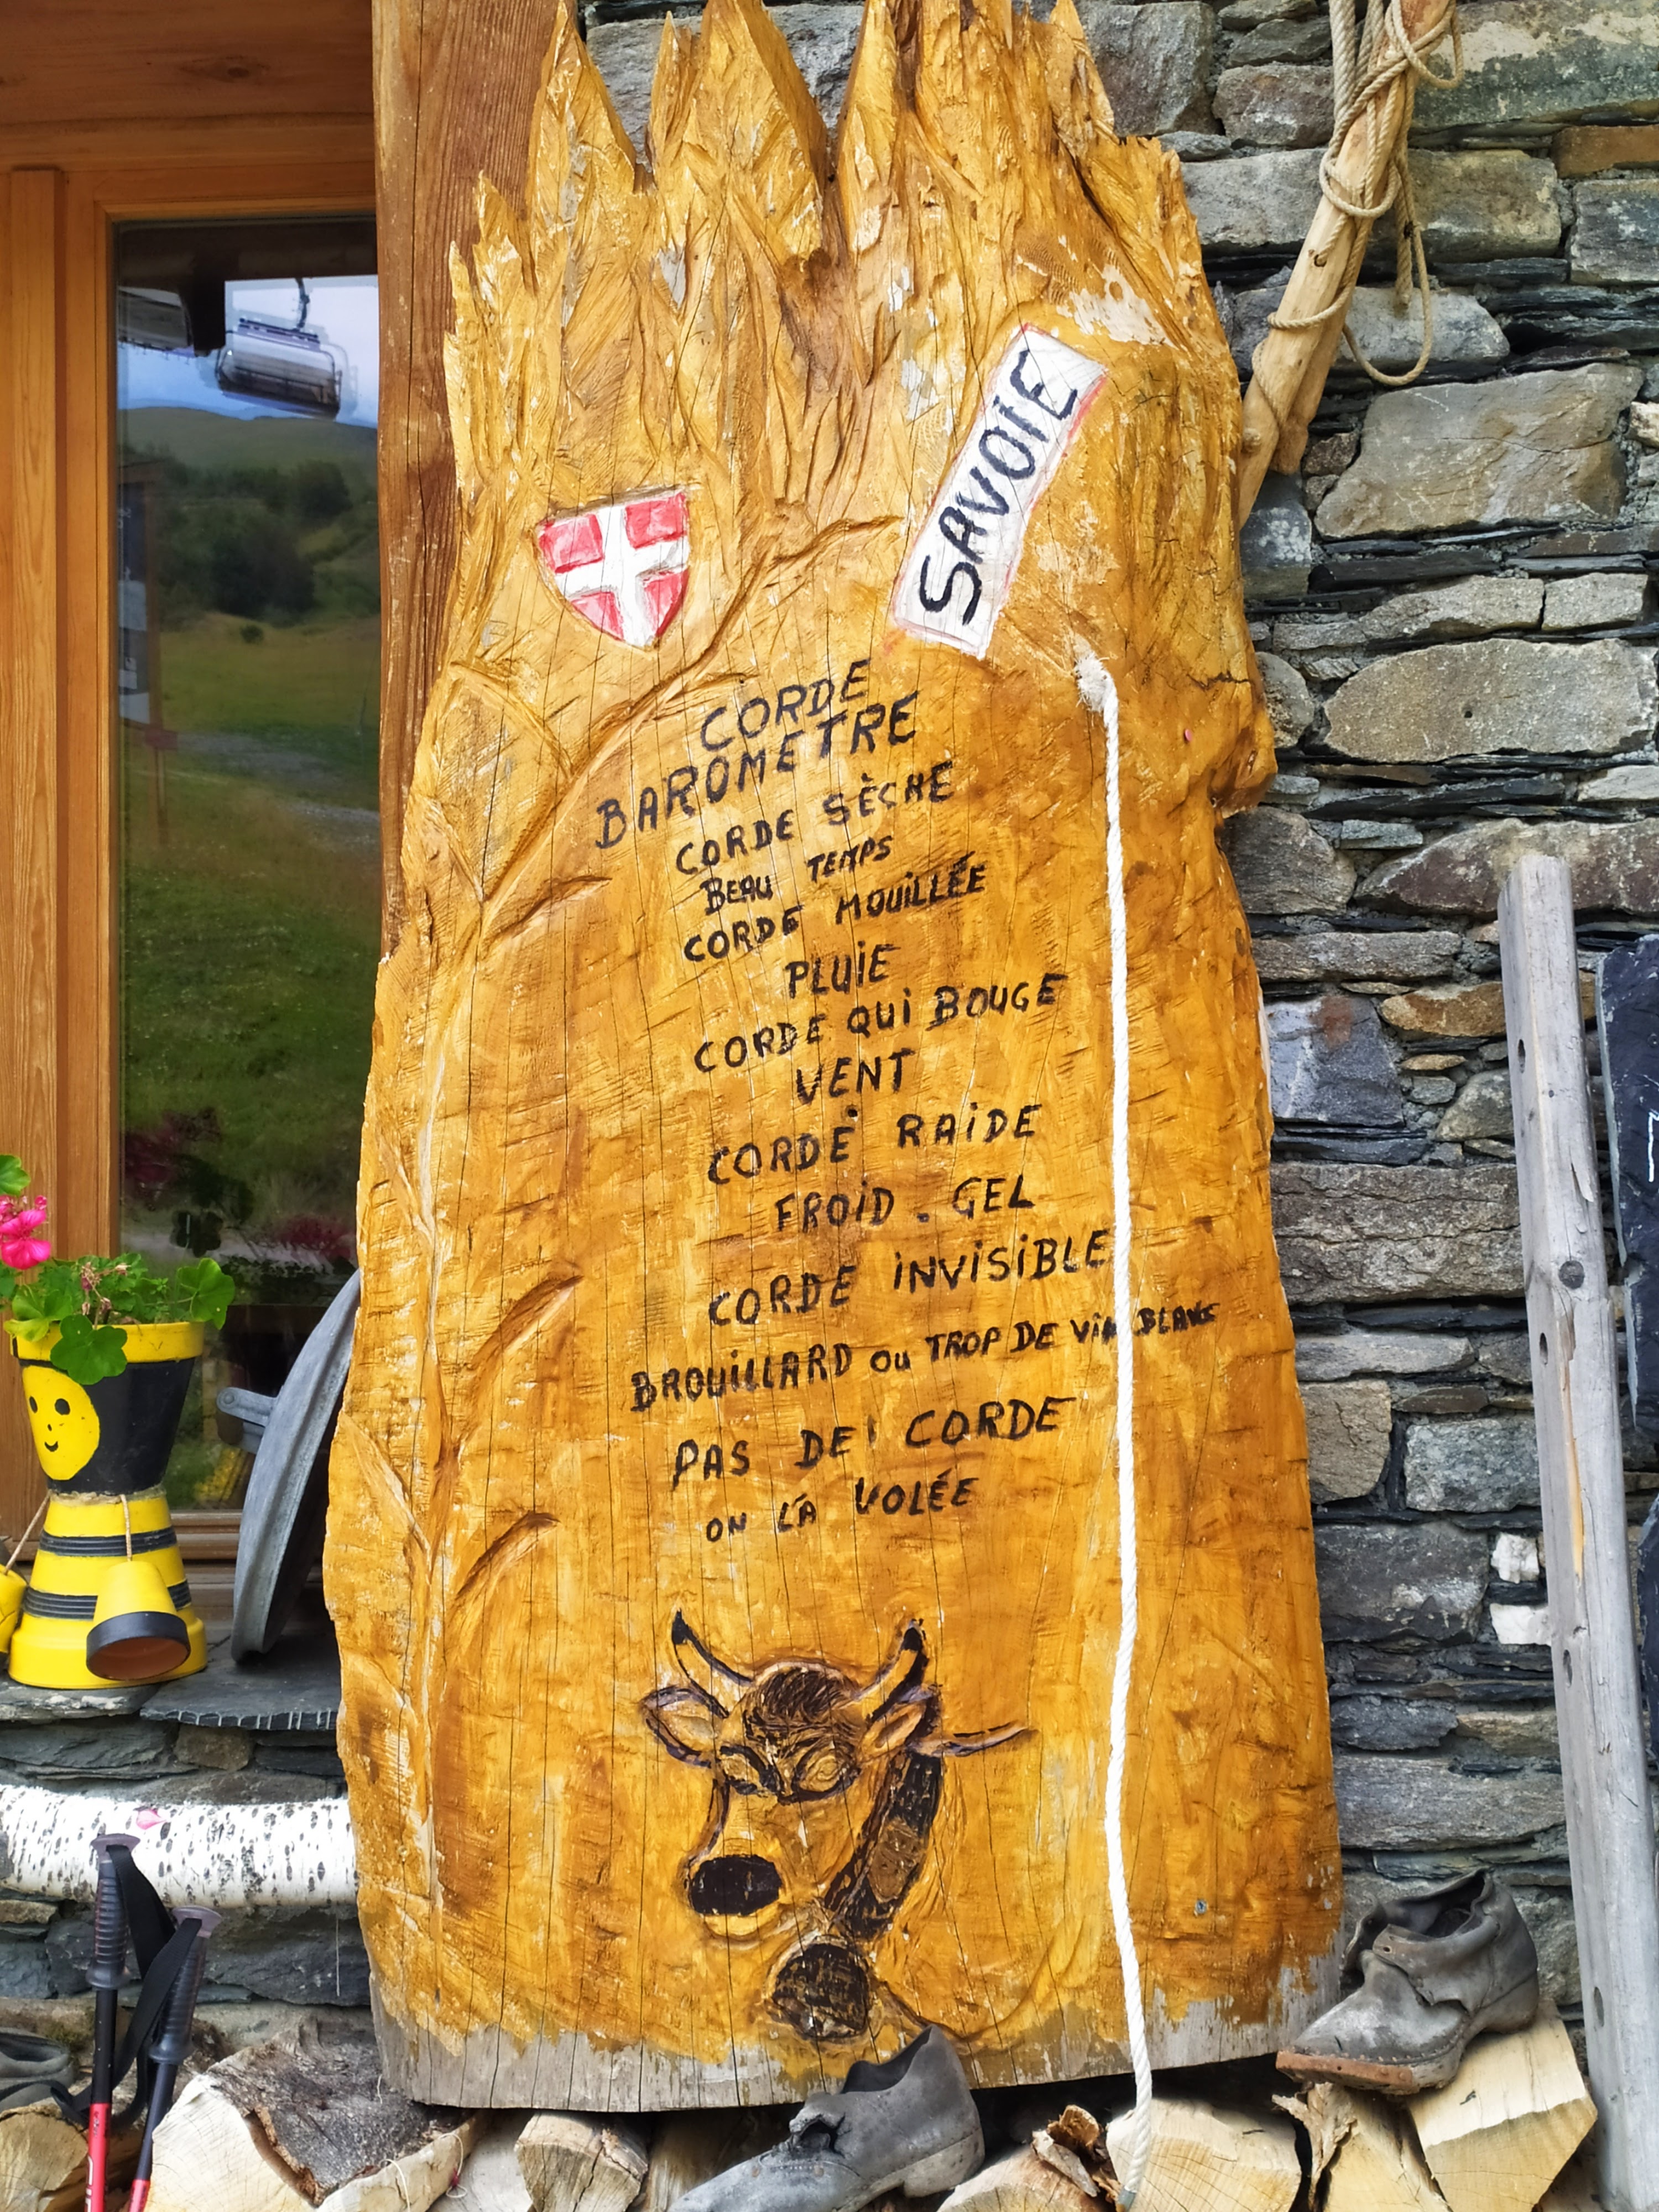 SAVOIE
CORDE
BAROMETRE
CORDE SÈCHE
BEAU TEMPS
CORDE MOUILLÉE
PLUIE
CORDE QUI BOUGE
VENT
CORDE RAIDE
FROID . GEL
CORDE INVISIBLE
BROUILLARD OU TROP DE VIN BLANC
PAS DE CORDE
ON L'A VOLÉE